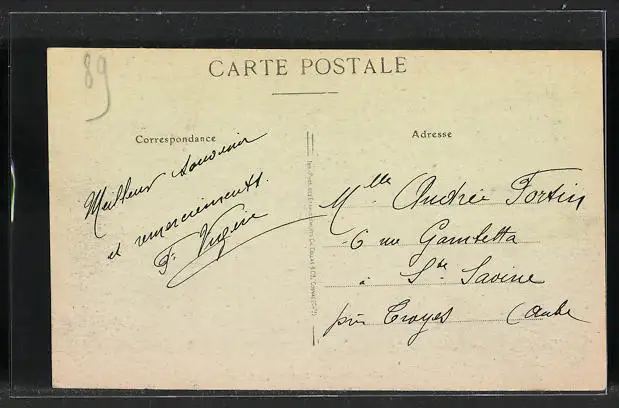 89
CARTE POSTALE
Correspondance
Adresse
Meilleur souvenir
et remerciements.
F. Vigere
Mlle Andrée Fortin
6 rue Gambetta
à Ste Savine
près Troyes (Aube